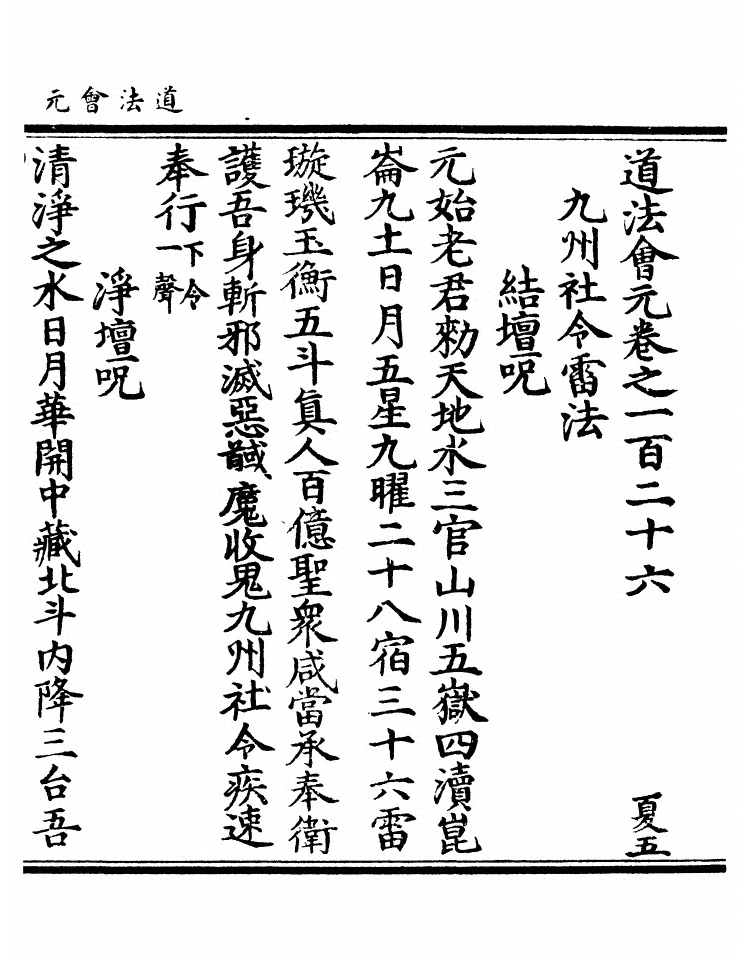 道法會元
道法會元卷之一百二十六 夏五
九州社令雷法
結壇呪
元始老君勑天地水三官山川五嶽四瀆崑
崙九土日月五星九曜二十八宿三十六雷
璇璣玉衡五斗眞人百億聖衆咸當承奉衛
護吾身斬邪滅惡馘魔收鬼九州社令疾速
奉行一下令聲
淨壇呪
清淨之水日月華開中藏北斗内降三台吾